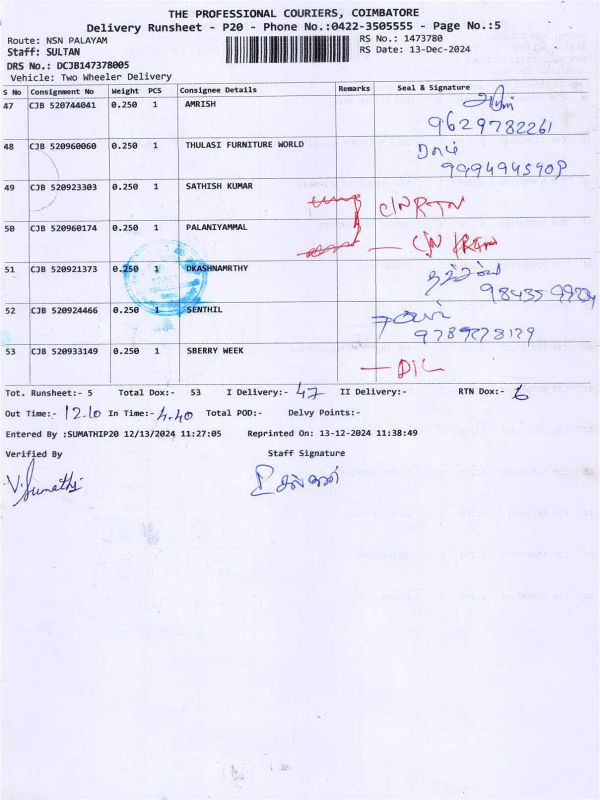 THE PROFESSIONAL COURIERS, COIMBATORE
Delivery Runsheet - P20 - Phone No.:0422-3505555 - Page No.:5
Route: NSN PALAYAM
RS No.: 1473780
Staff: SULTAN
RS Date: 13-Dec-2024
DRS No.: DCJB147378005
Vehicle: Two Wheeler Delivery
S No Consignment No Weight PCS Consignee Details Remarks Seal & Signature
47 CJB 520744041 0.250 1 AMRISH
9629782261
48 CJB 520960060 0.250 1 THULASI FURNITURE WORLD
49 CJB 520923303 0.250 1 SATHISH KUMAR C/N RTN
50 CJB 520960174 0.250 1 PALANIYAMMAL — C/N RTN
51 CJB 520921373 0.250 1 DKASHNAMRTHY
52 CJB 520924466 0.250 1 SENTHIL
53 CJB 520933149 0.250 1 SBERRY WEEK — D/L
Tot. Runsheet:- 5 Total Dox:- 53 I Delivery:- 47 II Delivery:- RTN Dox:- 6
Out Time:- 12.10 In Time:- 4.40 Total POD:- Delvy Points:-
Entered By :SUMATHIP20 12/13/2024 11:27:05 Reprinted On: 13-12-2024 11:38:49
Verified By Staff Signature
V. Sumathi